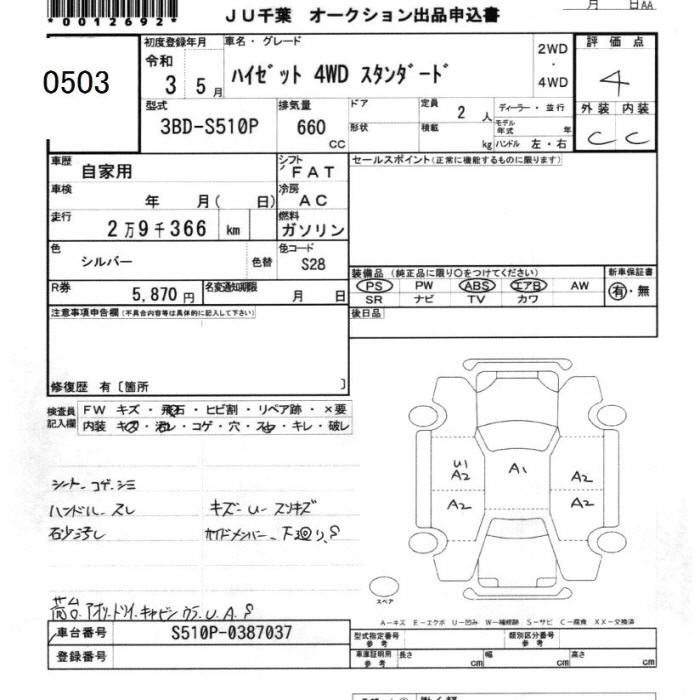 *0012692*
JU千葉 オークション出品申込書
月 日AA
0503
初度登録年月
車名・グレード
令和
3 5月
ハイゼット 4WD スタンダード
2WD
・
4WD
評価点
4
型式
3BD-S510P
排気量
660
CC
ドア
形状
定員
2 人
積載
kg
ディーラー・並行
モデル年式
年
ハンドル 左・右
外装 内装
C C
車歴
自家用
シフト
FAT
セールスポイント(正常に機能するものに限ります)
車検
年 月( 日)
冷房
AC
走行
2万9千366 km
燃料
ガソリン
色
シルバー
色替
色コード
S28
R券
5,870円
名変通知期限
月 日
装備品(純正品に限り○をつけてください)
新車保証書
PS PW ABS エアB AW
SR ナビ TV カワ
有・無
注意事項申告欄(不具合内容等は具体的に記入して下さい)
後日品
修復歴 有〔箇所 〕
検査員記入欄
FW キズ・飛石・ヒビ割・リペア跡・×要
内装 キズ・汚レ・コゲ・穴・スレ・キレ・破レ
シート コゲ シミ
ハンドル スレ
キズ U スリキズ
石少汚し
サイドメンバー 下廻り S
荷台 アオリ トリイ キャビンウラ U A S
U1
A2
A1
A2
A2
A2
スペア
A-キズ E-エクボ U-凹み W-補修跡 S-サビ C-腐食 XX-交換済
車台番号
S510P-0387037
登録番号
型式指定番号
参考
類別区分番号
参考
車庫証明用
参考
長さ
cm
幅
cm
高さ
cm